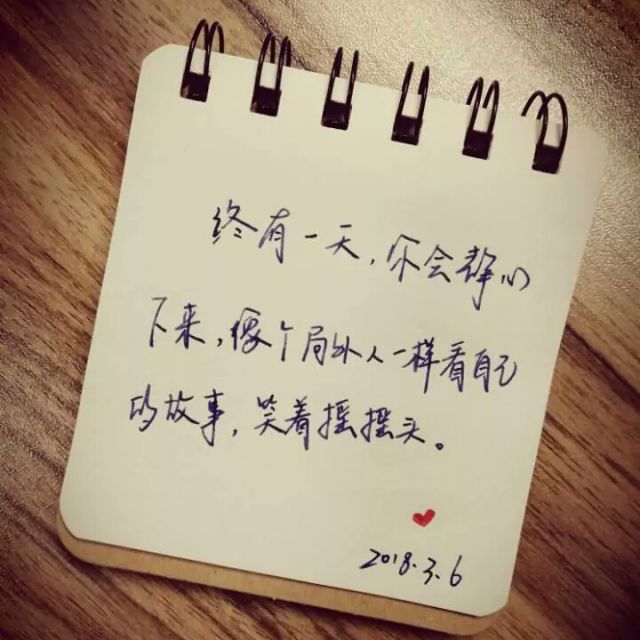 终有一天，你会静心
下来，像个局外人一样看自己
的故事，笑着摇摇头。
2018.3.6